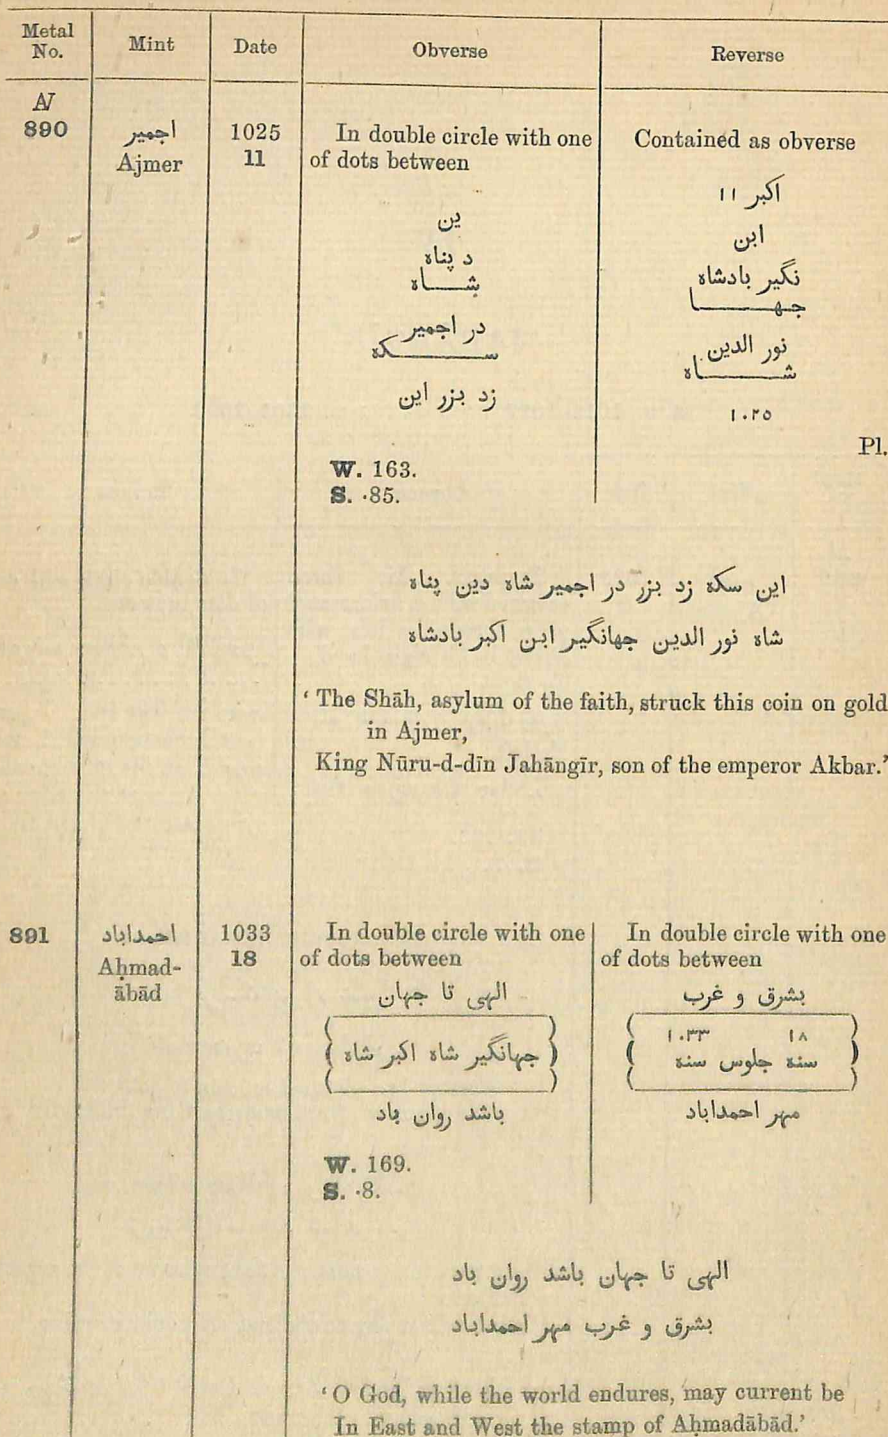 Metal No.
Mint
Date
Obverse
Reverse
AV
890
اجمیر
Ajmer
1025
11
In double circle with one
of dots between
ین
د پناه
شاه
در اجمیر
سکه
زد بزر این
W. 163.
S. ·85.
Contained as obverse
اکبر ۱۱
ابن
نگیر بادشاه
جها
نور الدین
شاه
۱۰۲۵
Pl.
این سکه زد بزر در اجمیر شاه دین پناه
شاه نور الدین جهانگیر ابن اکبر بادشاه
‘ The Shāh, asylum of the faith, struck this coin on gold
in Ajmer,
King Nūru-d-dīn Jahāngīr, son of the emperor Akbar.’
891
احمداباد
Aḥmad-
ābād
1033
18
In double circle with one
of dots between
الهی تا جهان
جهانگیر شاه اکبر شاه
باشد روان باد
W. 169.
S. ·8.
In double circle with one
of dots between
بشرق و غرب
۱۰۳۳ ۱۸
سنة جلوس سنة
مهر احمداباد
الهی تا جهان باشد روان باد
بشرق و غرب مهر احمداباد
‘ O God, while the world endures, may current be
In East and West the stamp of Aḥmadābād.’